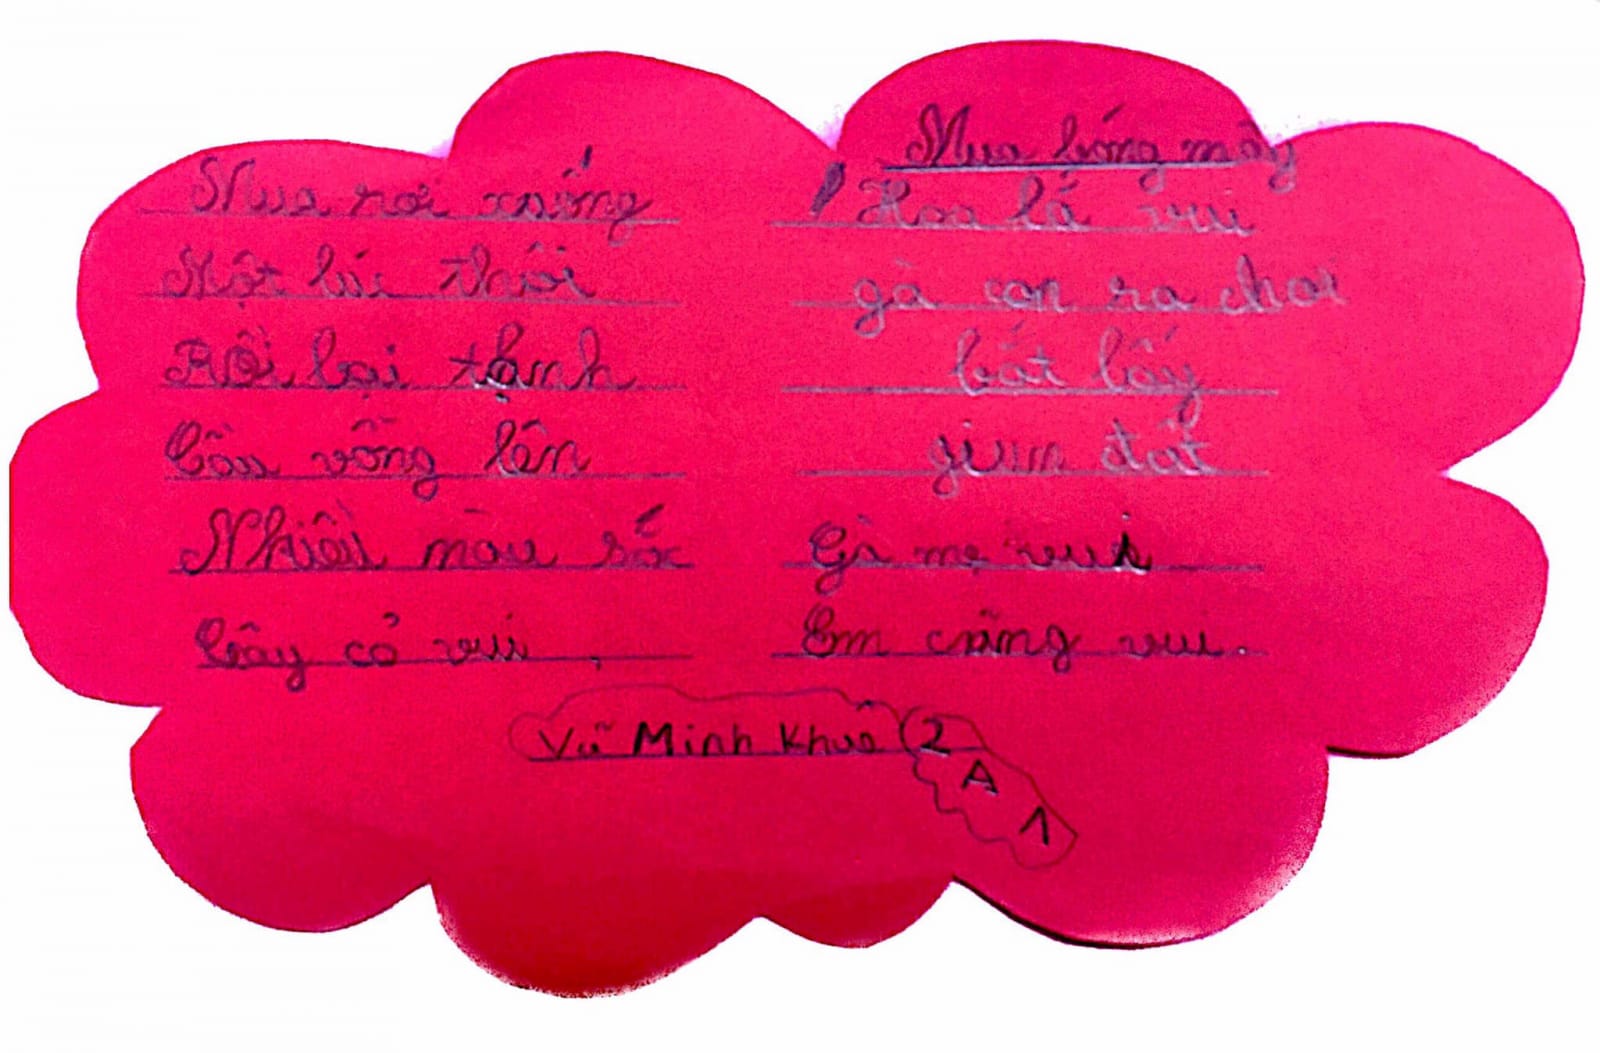 Mưa bóng mây
Mưa rơi xuống
Một lúc thôi
Rồi lại tạnh
Cầu vồng lên
Nhiều màu sắc
Cây cỏ vui,
Hoa lá vui
gà con ra chơi
bắt lấy
giun đất
Gà mẹ vui
Em cũng vui.
Vũ Minh Khuê 2
A
1